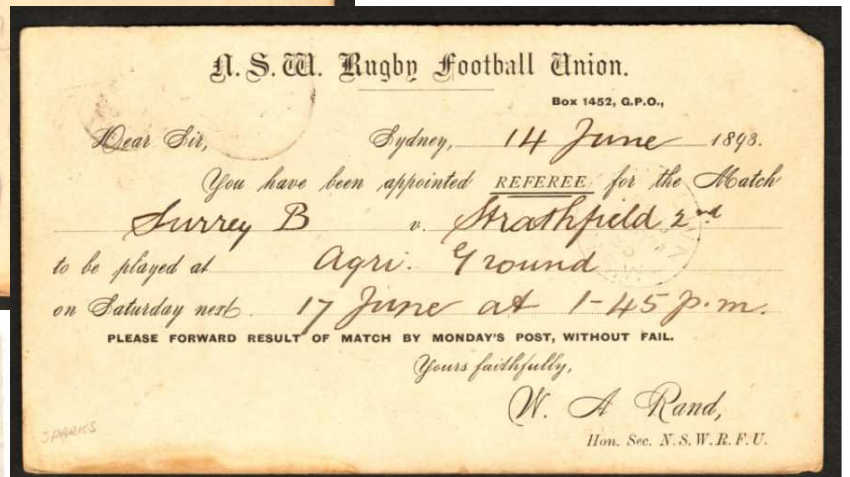 N. S. W. Rugby Football Union.
Box 1452, G.P.O.,
Dear Sir, Sydney, 14 June 1893.
You have been appointed REFEREE for the Match
Surrey B v. Strathfield 2nd
to be played at Agri. Ground
on Saturday next. 17 June at 1-45 p.m.
PLEASE FORWARD RESULT OF MATCH BY MONDAY'S POST, WITHOUT FAIL.
Yours faithfully,
W. A Rand,
Hon. Sec. N.S.W.R.F.U.
SPARKS